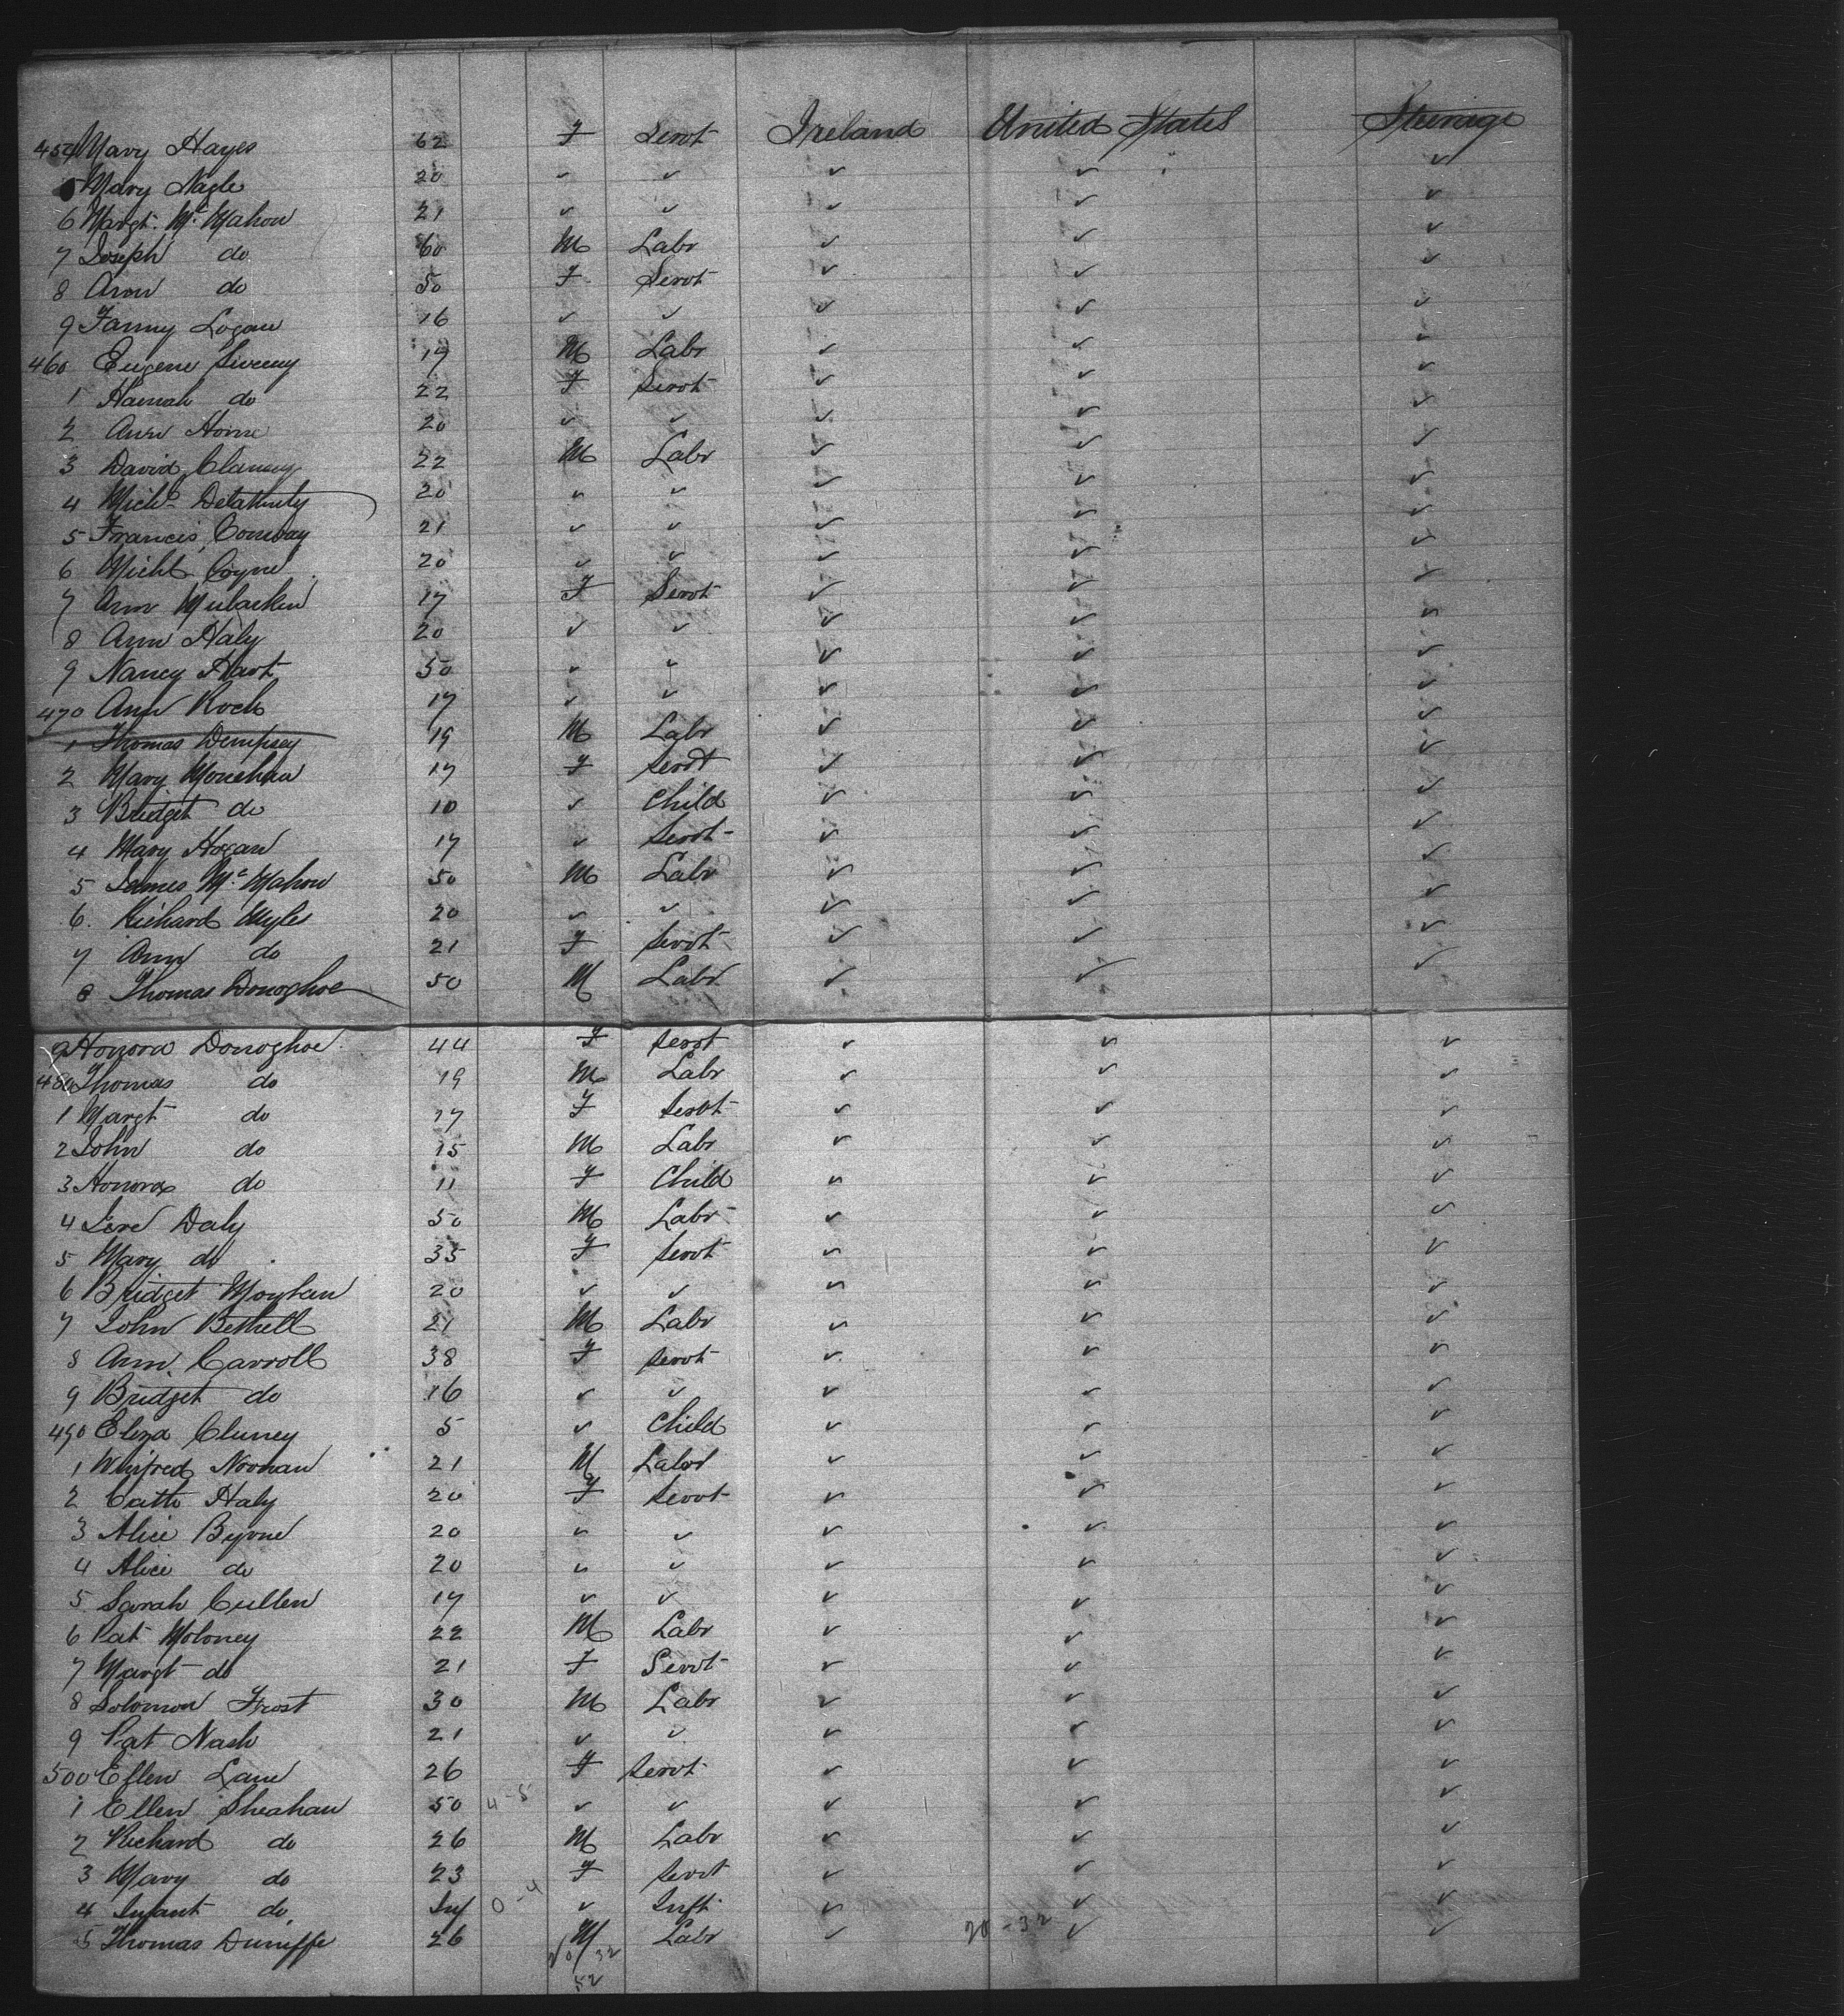 454 Mary Hayes 62 F Servt Ireland United States Steerage
5 Mary Nagle 20 " " " " "
6 Margt. McMahon 21 " " " " "
7 Joseph do 60 M Labr " " "
8 Ann do 50 F Servt " " "
9 Fanny Logan 16 " " " " "
460 Eugene Sweeny 19 M Labr " " "
1 Hannah do 22 F Servt " " "
2 Ann Horne 20 " " " " "
3 David Clancey 22 M Labr " " "
4 Michl 20 " " " " "
5 Francis Conway 21 " " " " "
6 Michl Coyne 20 " " " " "
7 Ann Mularkin 17 F Servt " " "
8 Ann Haly 20 " " " " "
9 Nancy Hart 50 " " " " "
470 Ann Roch 17 " " " " "
1 Thomas Dempsey 19 M Labr " " "
2 Mary Monehan 17 F Servt " " "
3 Bridget do 10 " Child " " "
4 Mary Hogan 17 " Servt " " "
5 James McMahon 50 M Labr " " "
6 Richard Myles 20 " " " " "
7 Ann do 21 F Servt " " "
8 Thomas Donoghoe 50 M Labr " " "
9 Honora Donoghoe 44 F Servt " " "
480 Thomas do 19 M Labr " " "
1 Margt do 17 F Servt " " "
2 John do 15 M Labr " " "
3 Honora do 11 F Child " " "
4 Jere Daly 50 M Labr " " "
5 Mary do 35 F Servt " " "
6 Bridget Moylan 20 " " " " "
7 John Bethell 21 M Labr " " "
8 Ann Carroll 38 F Servt " " "
9 Bridget do 16 " " " " "
490 Eliza Cluney 5 " Child " " "
1 Winifred Noonan 21 M Labr " " "
2 Cath Haly 20 F Servt " " "
3 Alice Byrne 20 " " " " "
4 Alice do 20 " " " " "
5 Sarah Cullen 17 " " " " "
6 Pat Moloney 22 M Labr " " "
7 Margt do 21 F Servt " " "
8 Solomon Frost 30 M Labr " " "
9 Pat Nash 21 " " " " "
500 Ellen Lane 26 F Servt " " "
1 Ellen Sheahan 50 4-5 " " " " "
2 Richard do 26 M Labr " " "
3 Mary do 23 F Servt " " "
4 Infant do Inf 0-4 " Inft " " "
5 Thomas Duniffe 26 M Labr " 20-32 " "
20/32
52